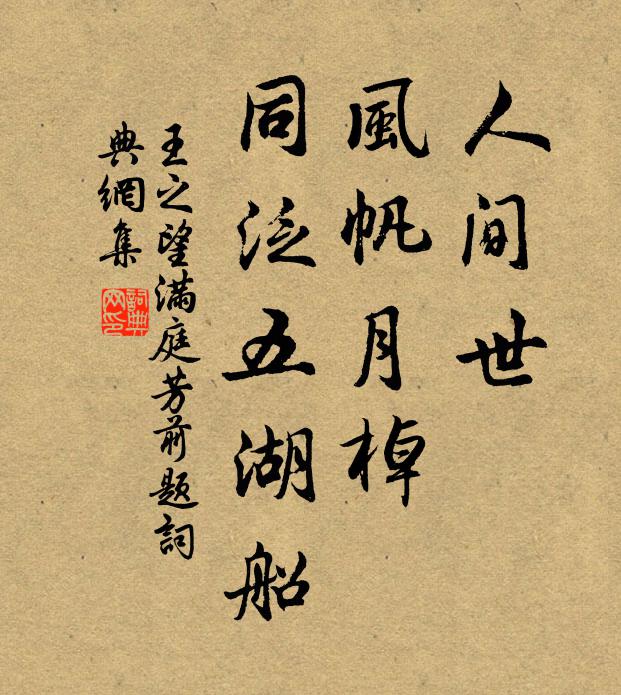 人間世
風帆月棹
同泛五湖船
王之望滿庭芳前题詞
典網集
詞典网印